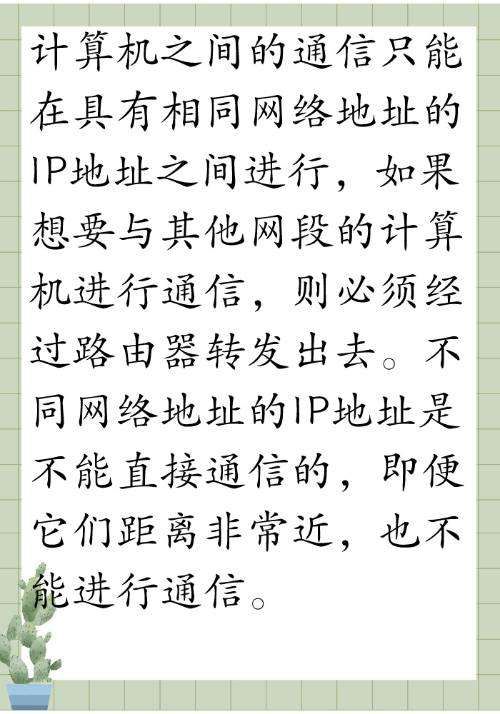 计算机之间的通信只能
在具有相同网络地址的
IP地址之间进行，如果
想要与其他网段的计算
机进行通信，则必须经
过路由器转发出去。不
同网络地址的IP地址是
不能直接通信的，即便
它们距离非常近，也不
能进行通信。